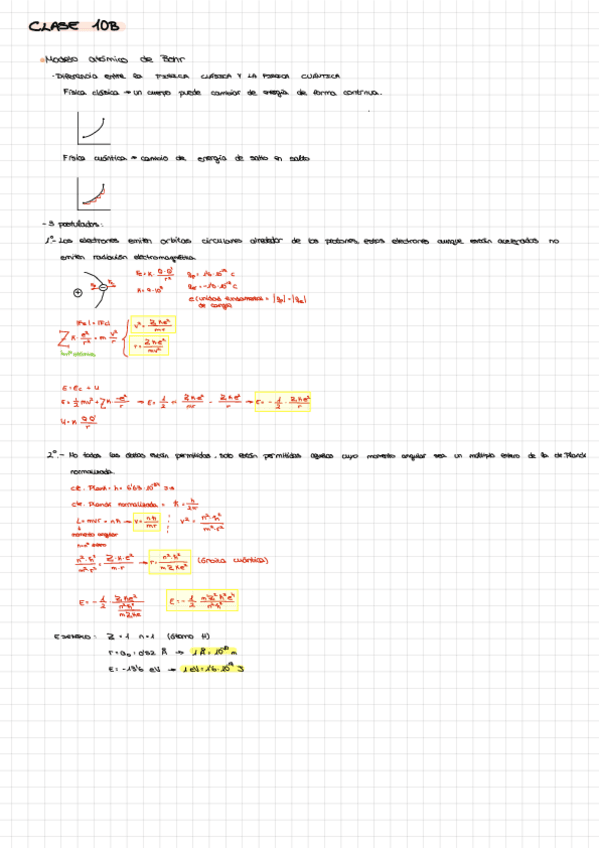 CLASE 10B
Modelo atómico de Bohr
- Diferencia entre la FÍSICA CLÁSICA Y LA FÍSICA CUÁNTICA
Física clásica → un cuerpo puede cambiar de energía de forma continua.
Física cuántica → cambio de energía de salto en salto
- 3 postulados:
1º- Los electrones emiten orbitas circulares alrededor de los protones, estos electrones aunque están acelerados no
emiten radiación electromagnética.
Fe = K · Q·Q'/r²
K = 9·10⁹
e (unidad fundamental de carga) = |qp| = |qe|
|Fe| = |Fc|
Z K · e²/r² = m v²/r
v² = ZKe²/mr
r = ZKe²/mv²
E = Ec + U
E = 1/2 mv² + Z K · -e²/r → E = 1/2 m ZKe²/mr - ZKe²/r → E = - 1/2 · ZKe²/r
U = K QQ'/r
2º.- No todas las están permitidas, solo están permitidas cuyo momento angular sea un múltiplo entero de la cte Planck
normalizada.
cte. Plank = h = 6'63·10⁻³⁴ J·s
cte. Planck normalizada = ħ = h/2π
L = mvr = nħ → v = nħ/mr
v² = n²·ħ²/m²·r²
momento angular
n²·ħ²/m²·r² = Z·K·e²/m·r → r = n²·ħ²/mZKe² (órbita cuántica)
E = - 1/2 · ZKe²/(n²ħ²/mZKe²)
EJEMPLO: Z = 1 n = 1 (átomo H)
r = a₀ = 0'52 Å → 1 Å = 10⁻¹⁰ m
E = -13'6 eV → 1 eV = 1'6·10⁻¹⁹ J